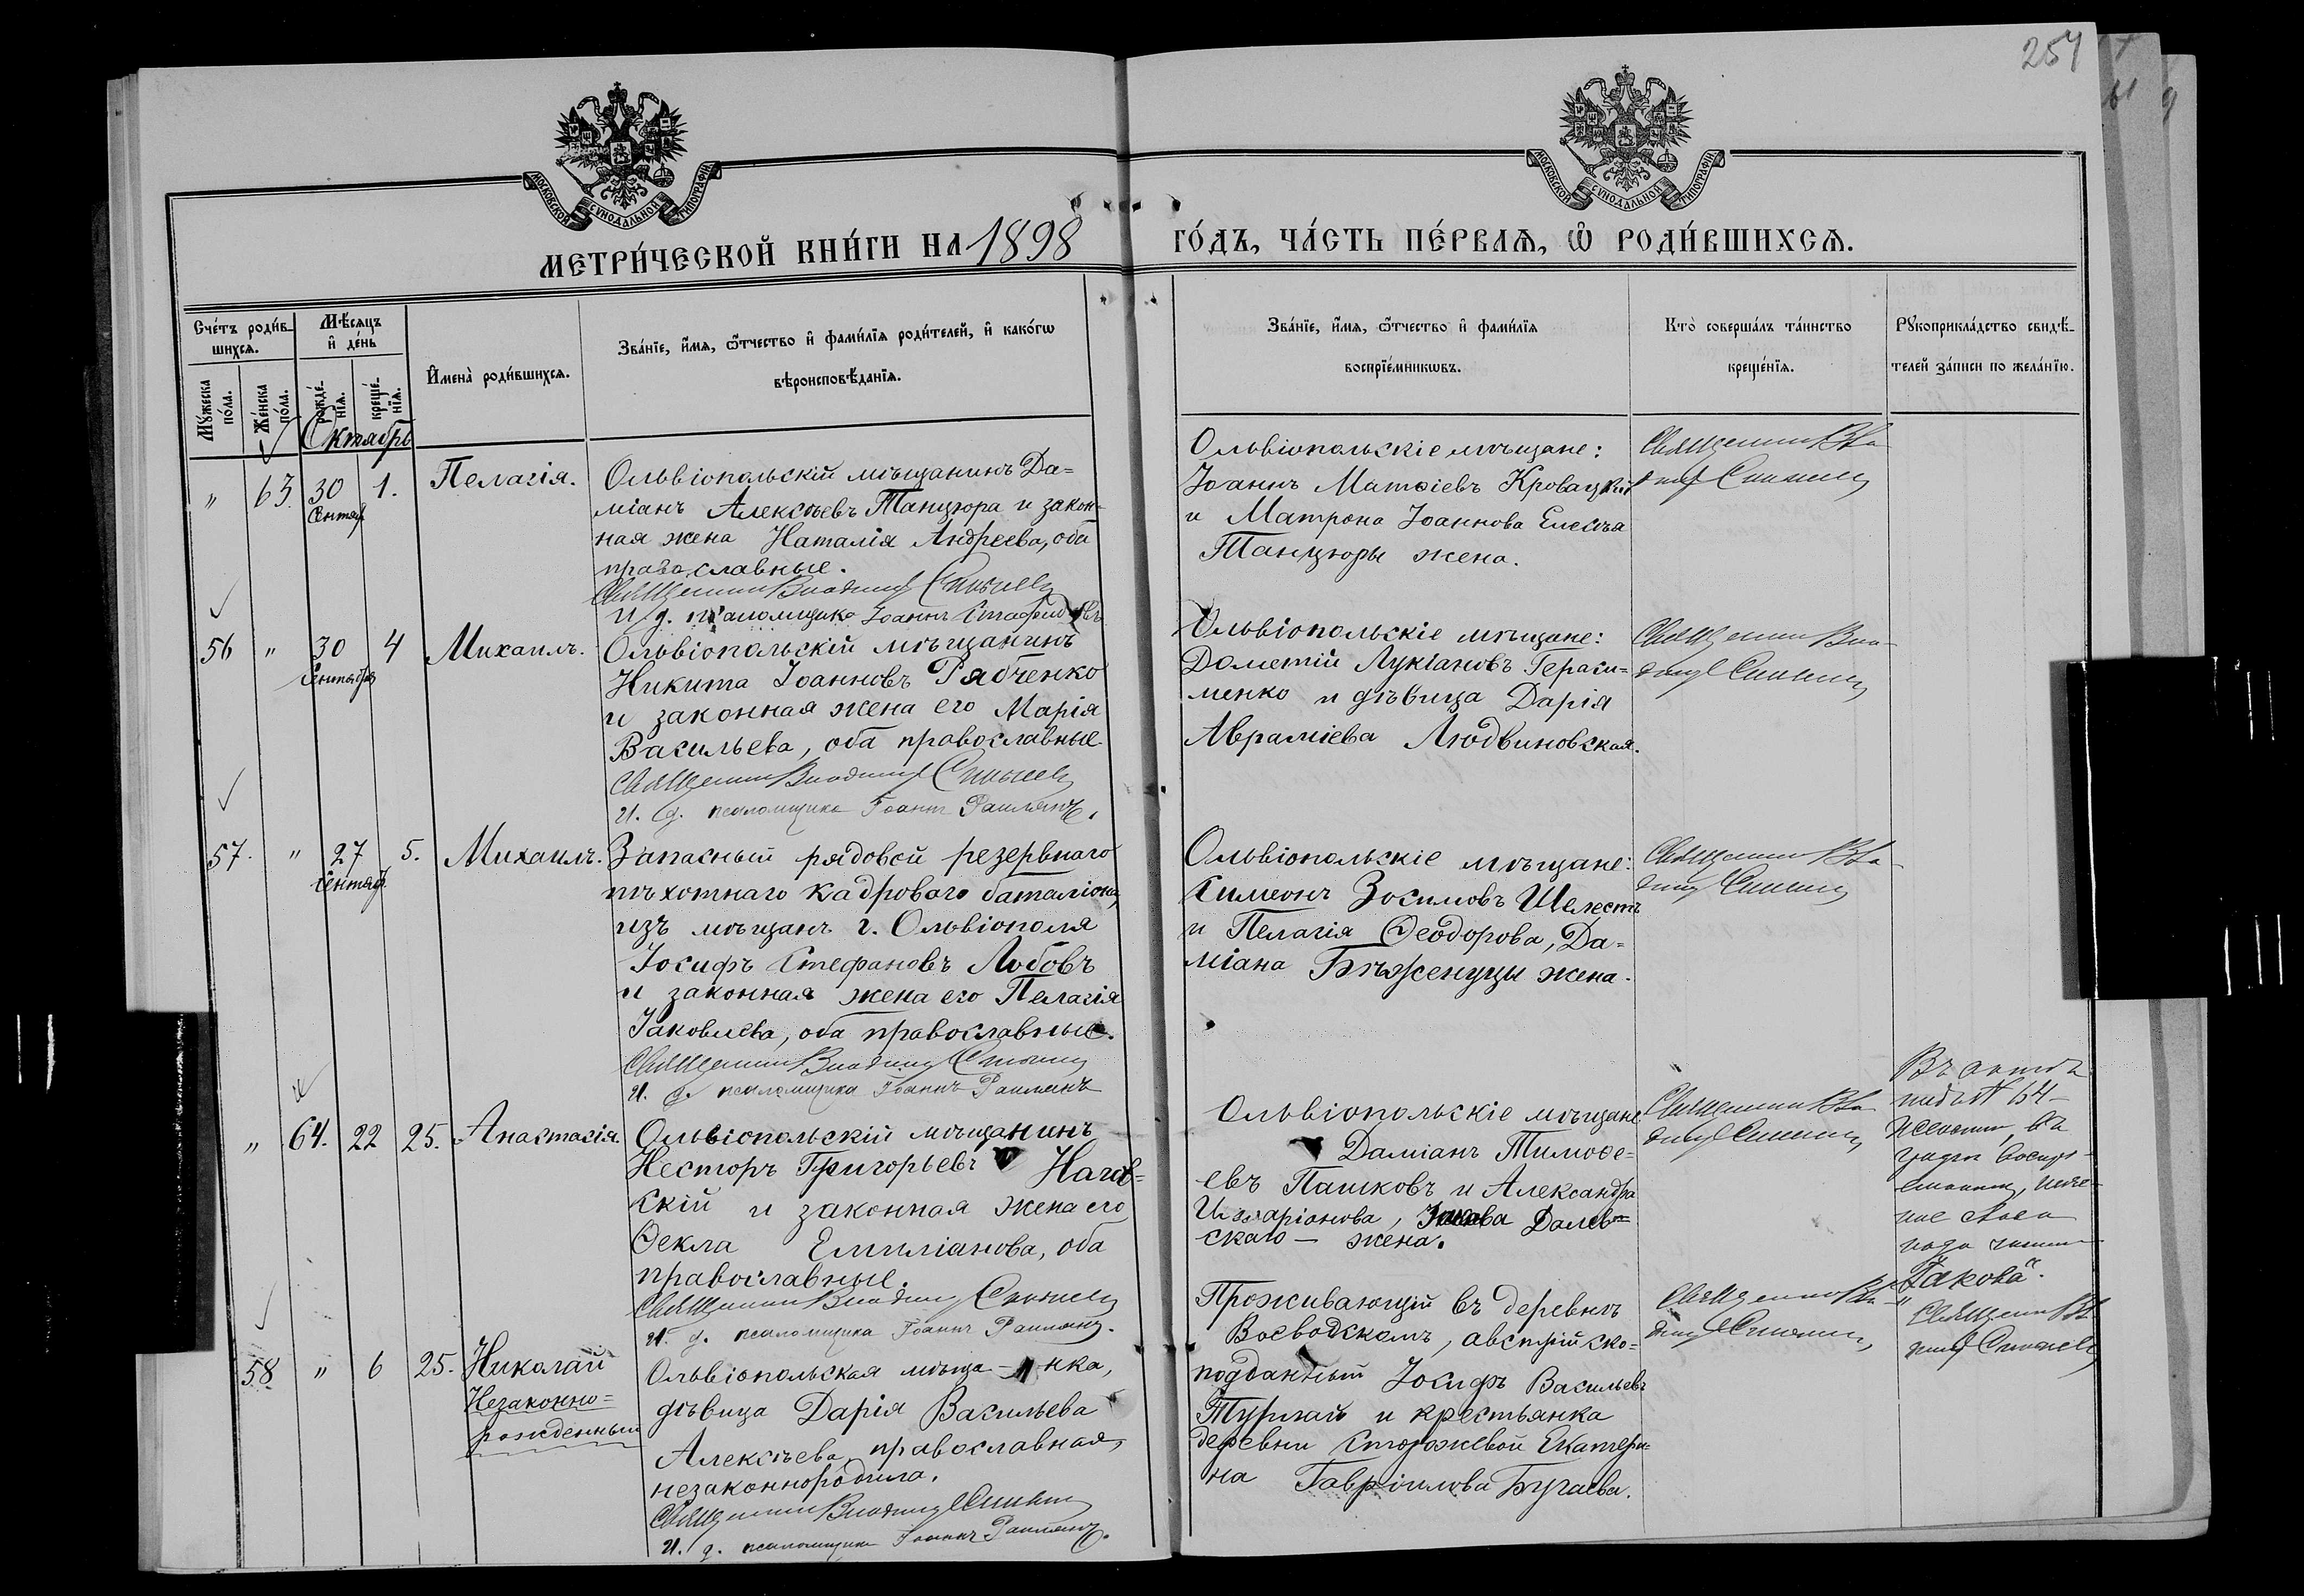 257
МОСКОВСКОЙ СѴНОДАЛЬНОЙ ТИПОГРАФІИ
МОСКОВСКОЙ СѴНОДАЛЬНОЙ ТИПОГРАФІИ
МЕТРИ́ЧЕСКОЙ КНИ́ГИ НА 1898 ГО́ДЪ, ЧА́СТЬ ПЕ́РВАѦ, Ѽ РОДИ́ВШИХСѦ.
Сче́тъ роди́в-
шихсѧ.
Мѣ́сѧцъ
и҆ де́нь
Мꙋ́жеска
по́ла.
Же́нска
по́ла.
рожде́-
нїѧ.
креще́-
нїѧ.
И҆мена̀ роди́вшихсѧ.
Зва́нїе, и҆́мѧ, ѻ҆́тчество и҆ фами́лїѧ роди́телей, и҆ како́гѡ
вѣроисповѣ́данїѧ.
Зва́нїе, и҆́мѧ, ѻ҆́тчество и҆ фами́лїѧ
воспрїе́мникѡвъ.
Кто̀ соверша́лъ та́инство
креще́нїѧ.
Рꙋкоприкла́дство свидѣ́-
телей за́писи по жела́нїю.
Октябрь
" 63 30 1. Пелагія.
Сентяб
Ольвіопольскій мѣщанинъ Да=
міанъ Алексѣевъ Танцюра и закон-
ная жена Наталія Андреева, оба
православные.
Священникъ Владимір
И. д. псаломщика Іоаннъ
Ольвіопольскіе мѣщане:
Іоаннъ Матѳіевъ Кровацкій
и Матрона Іоаннова Елесѣа
Танцюры жена.
Священникъ Вла-
димір
56 " 30 4 Михаилъ.
Сентября
Ольвіопольскій мѣщанинъ
Никита Іоанновъ Рябченко
и законная жена его Марія
Васильева, оба православные.
Священникъ Владимір
И. д. псаломщика Іоаннъ Раилянъ.
Ольвіопольскіе мѣщане:
Дометій Лукіановъ Гераси=
менко и дѣвица Дарія
Авраміева Людвиновская.
Священникъ Вла-
димір
57. " 27 5. Михаилъ.
Сентяб.
Запасный рядовой резервнаго
пѣхотнаго кадроваго баталіона,
изъ мѣщанъ г. Ольвіополя
Іосифъ Стефановъ Лобовъ
и законная жена его Пелагія
Іаковлева, оба православные.
Священникъ Владимір
И. д. псаломщика Іоаннъ Раилянъ
Ольвіопольскіе мѣщане:
Симеонъ Зосимовъ Шелестъ
и Пелагія Ѳеодорова, Да=
міана Бѣженуцы жена.
Священникъ Вла-
димір
" 64. 22 25. Анастасія.
Ольвіопольскій мѣщанинъ
Несторъ Григорьевъ Нагов=
скій и законная жена его
Ѳекла Емиліанова, оба
православные.
Священникъ Владимір
И. д. псаломщика Іоаннъ Раилянъ.
Ольвіопольскіе мѣщане
Даміанъ Тимоѳе=
евъ Пашковъ и Александра
Иларіонова, Іакова Далев=
скаго — жена.
Священникъ Вла-
димір
Въ актѣ
подъ № 64-
въ
"Іакова".
Священникъ Вла
димір
58 " 6 25. Николай
Незаконно=
рожденный
Ольвіопольская мѣща-нка,
дѣвица Дарія Васильева
Алексѣева, православная,
незаконнородила.
Священникъ Владимір
И. д. псаломщика Іоаннъ Раилянъ.
Проживающій въ деревнѣ
Воеводскомъ, австрійско=
подданный Іосифъ Васильевъ
и крестьянка
деревни Сторожевой Екатери=
на Гавріилова Бугаева.
Священникъ Вла-
димір